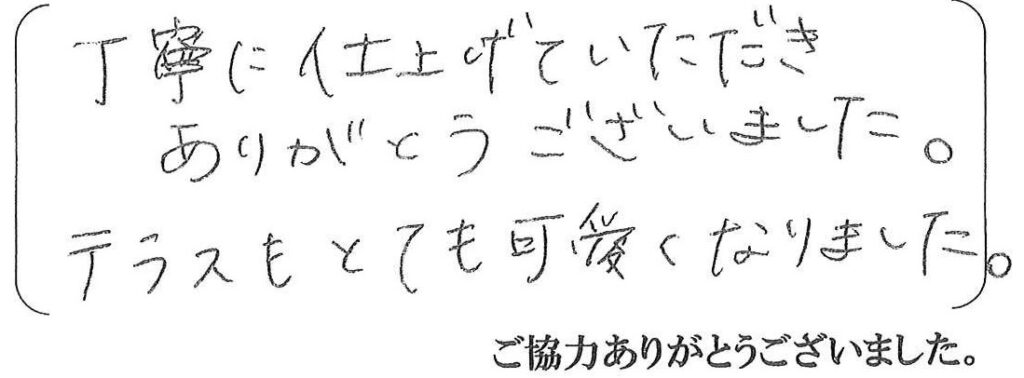 丁寧に仕上げていただき
ありがとうございました。
テラスもとても可愛くなりました。
ご協力ありがとうございました。